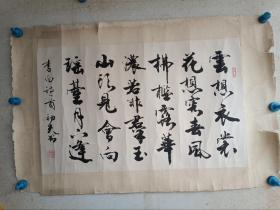 雲想衣裳
花想容春風
拂檻露華
濃若非羣玉
山頭見會向
瑤臺月下逢
李白詩